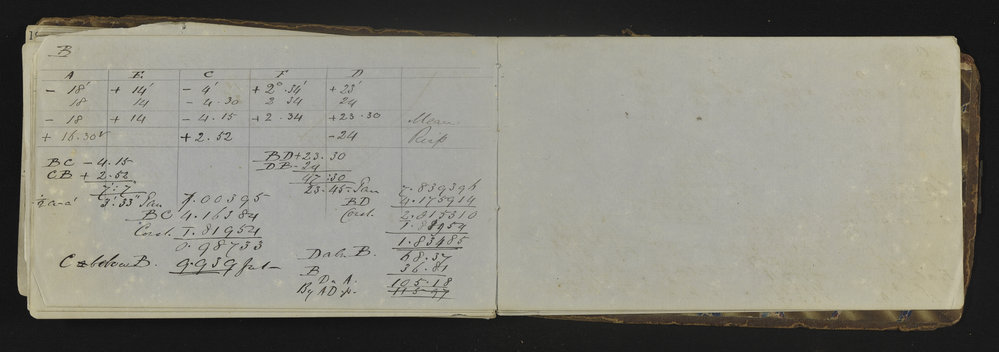 B
A E C F D
- 18' + 14' - 4' + 2°.34' + 23'
18 14 - 4.30 2 34 24
- 18 + 14 - 4.15 + 2.34 + 23.30 Mean
+ 16.30 + 2.52 - 24 Recip
BC - 4.15 BD + 23.30
CB + 2.52 DB - 24
7.7 47.30
3' 33" Tan 7.00395 23.45 = Tan 7.839396
BC 4.16384 BD 4.175914
Const. 1.81954 Const. 2.015310
0.98733 1.81954
1.83485
C below B. 9.939 feet D ab. B. 68.37
B 36.81
D. A. 105.18
By AD